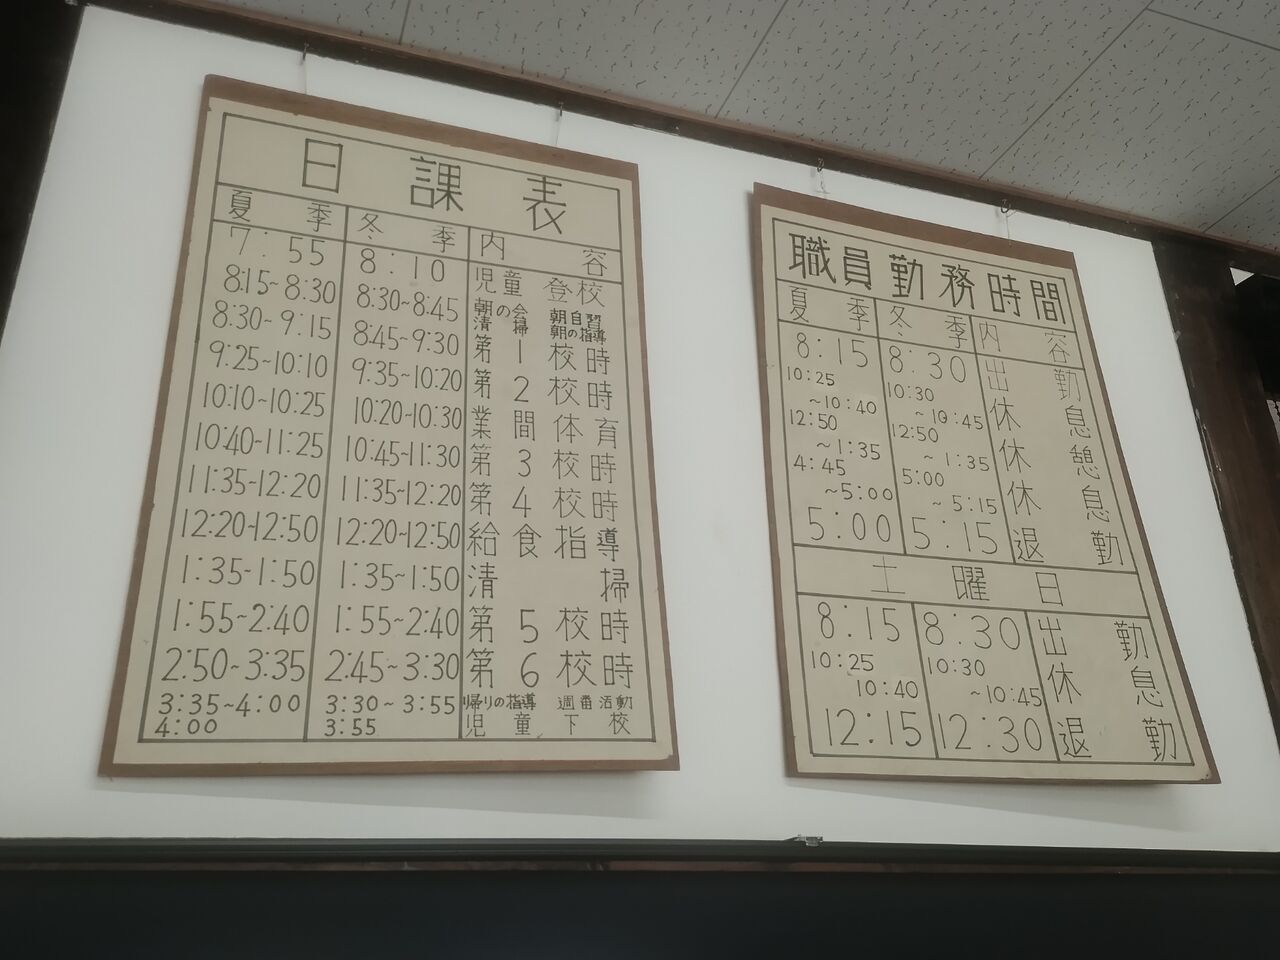 日課表
夏季 冬季 内容
7:55 8:10 児童登校
8:15~8:30 8:30~8:45 朝の会 朝自習
清掃 朝の指導
8:30~9:15 8:45~9:30 第1校時
9:25~10:10 9:35~10:20 第2校時
10:10~10:25 10:20~10:30 業間体育
10:40~11:25 10:45~11:30 第3校時
11:35~12:20 11:35~12:20 第4校時
12:20~12:50 12:20~12:50 給食指導
1:35~1:50 1:35~1:50 清掃
1:55~2:40 1:55~2:40 第5校時
2:50~3:35 2:45~3:30 第6校時
3:35~4:00 3:30~3:55 帰りの指導 週番活動
4:00 3:55 児童下校
職員勤務時間
夏季 冬季 内容
8:15 8:30 出勤
10:25~10:40 10:30~10:45 休息
12:50~1:35 12:50~1:35 休憩
4:45~5:00 5:00~5:15 休息
5:00 5:15 退勤
土曜日
8:15 8:30 出勤
10:25 10:40 10:30~10:45 休息
12:15 12:30 退勤